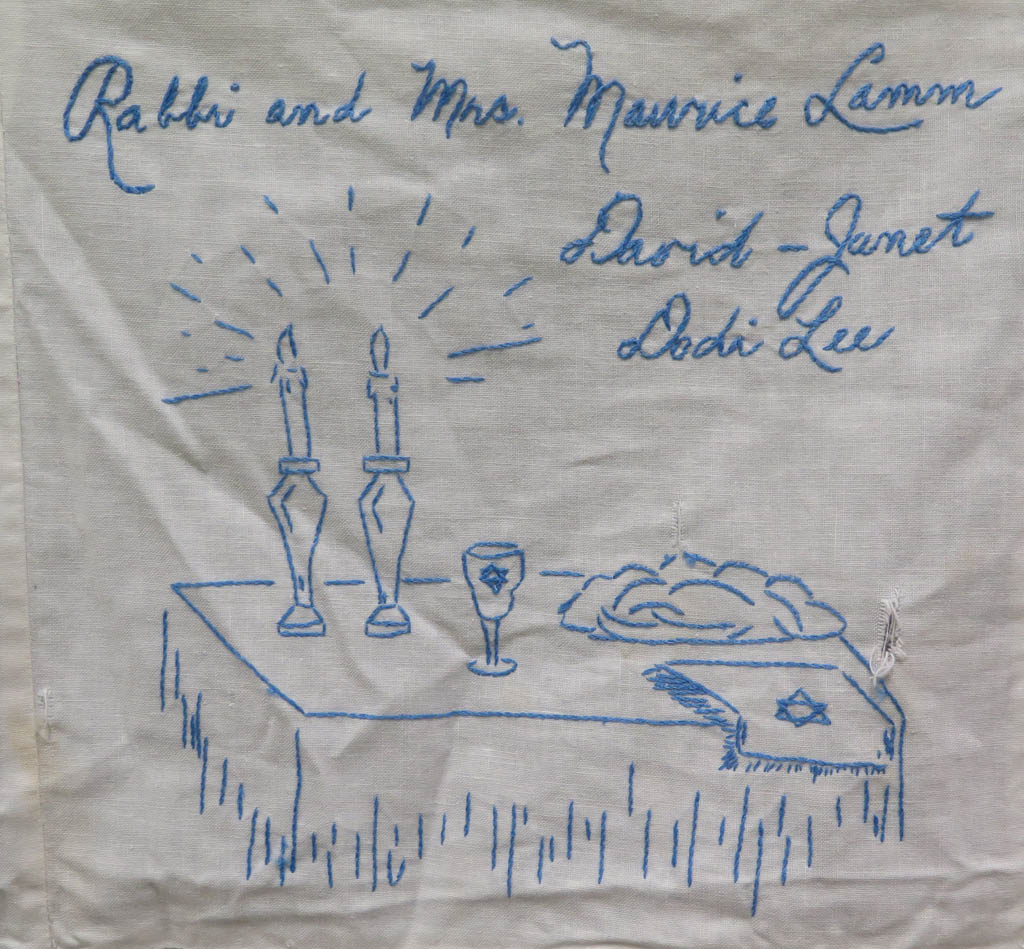 Rabbi and Mrs. Maurice Lamm
David - Janet
Dodi Lee